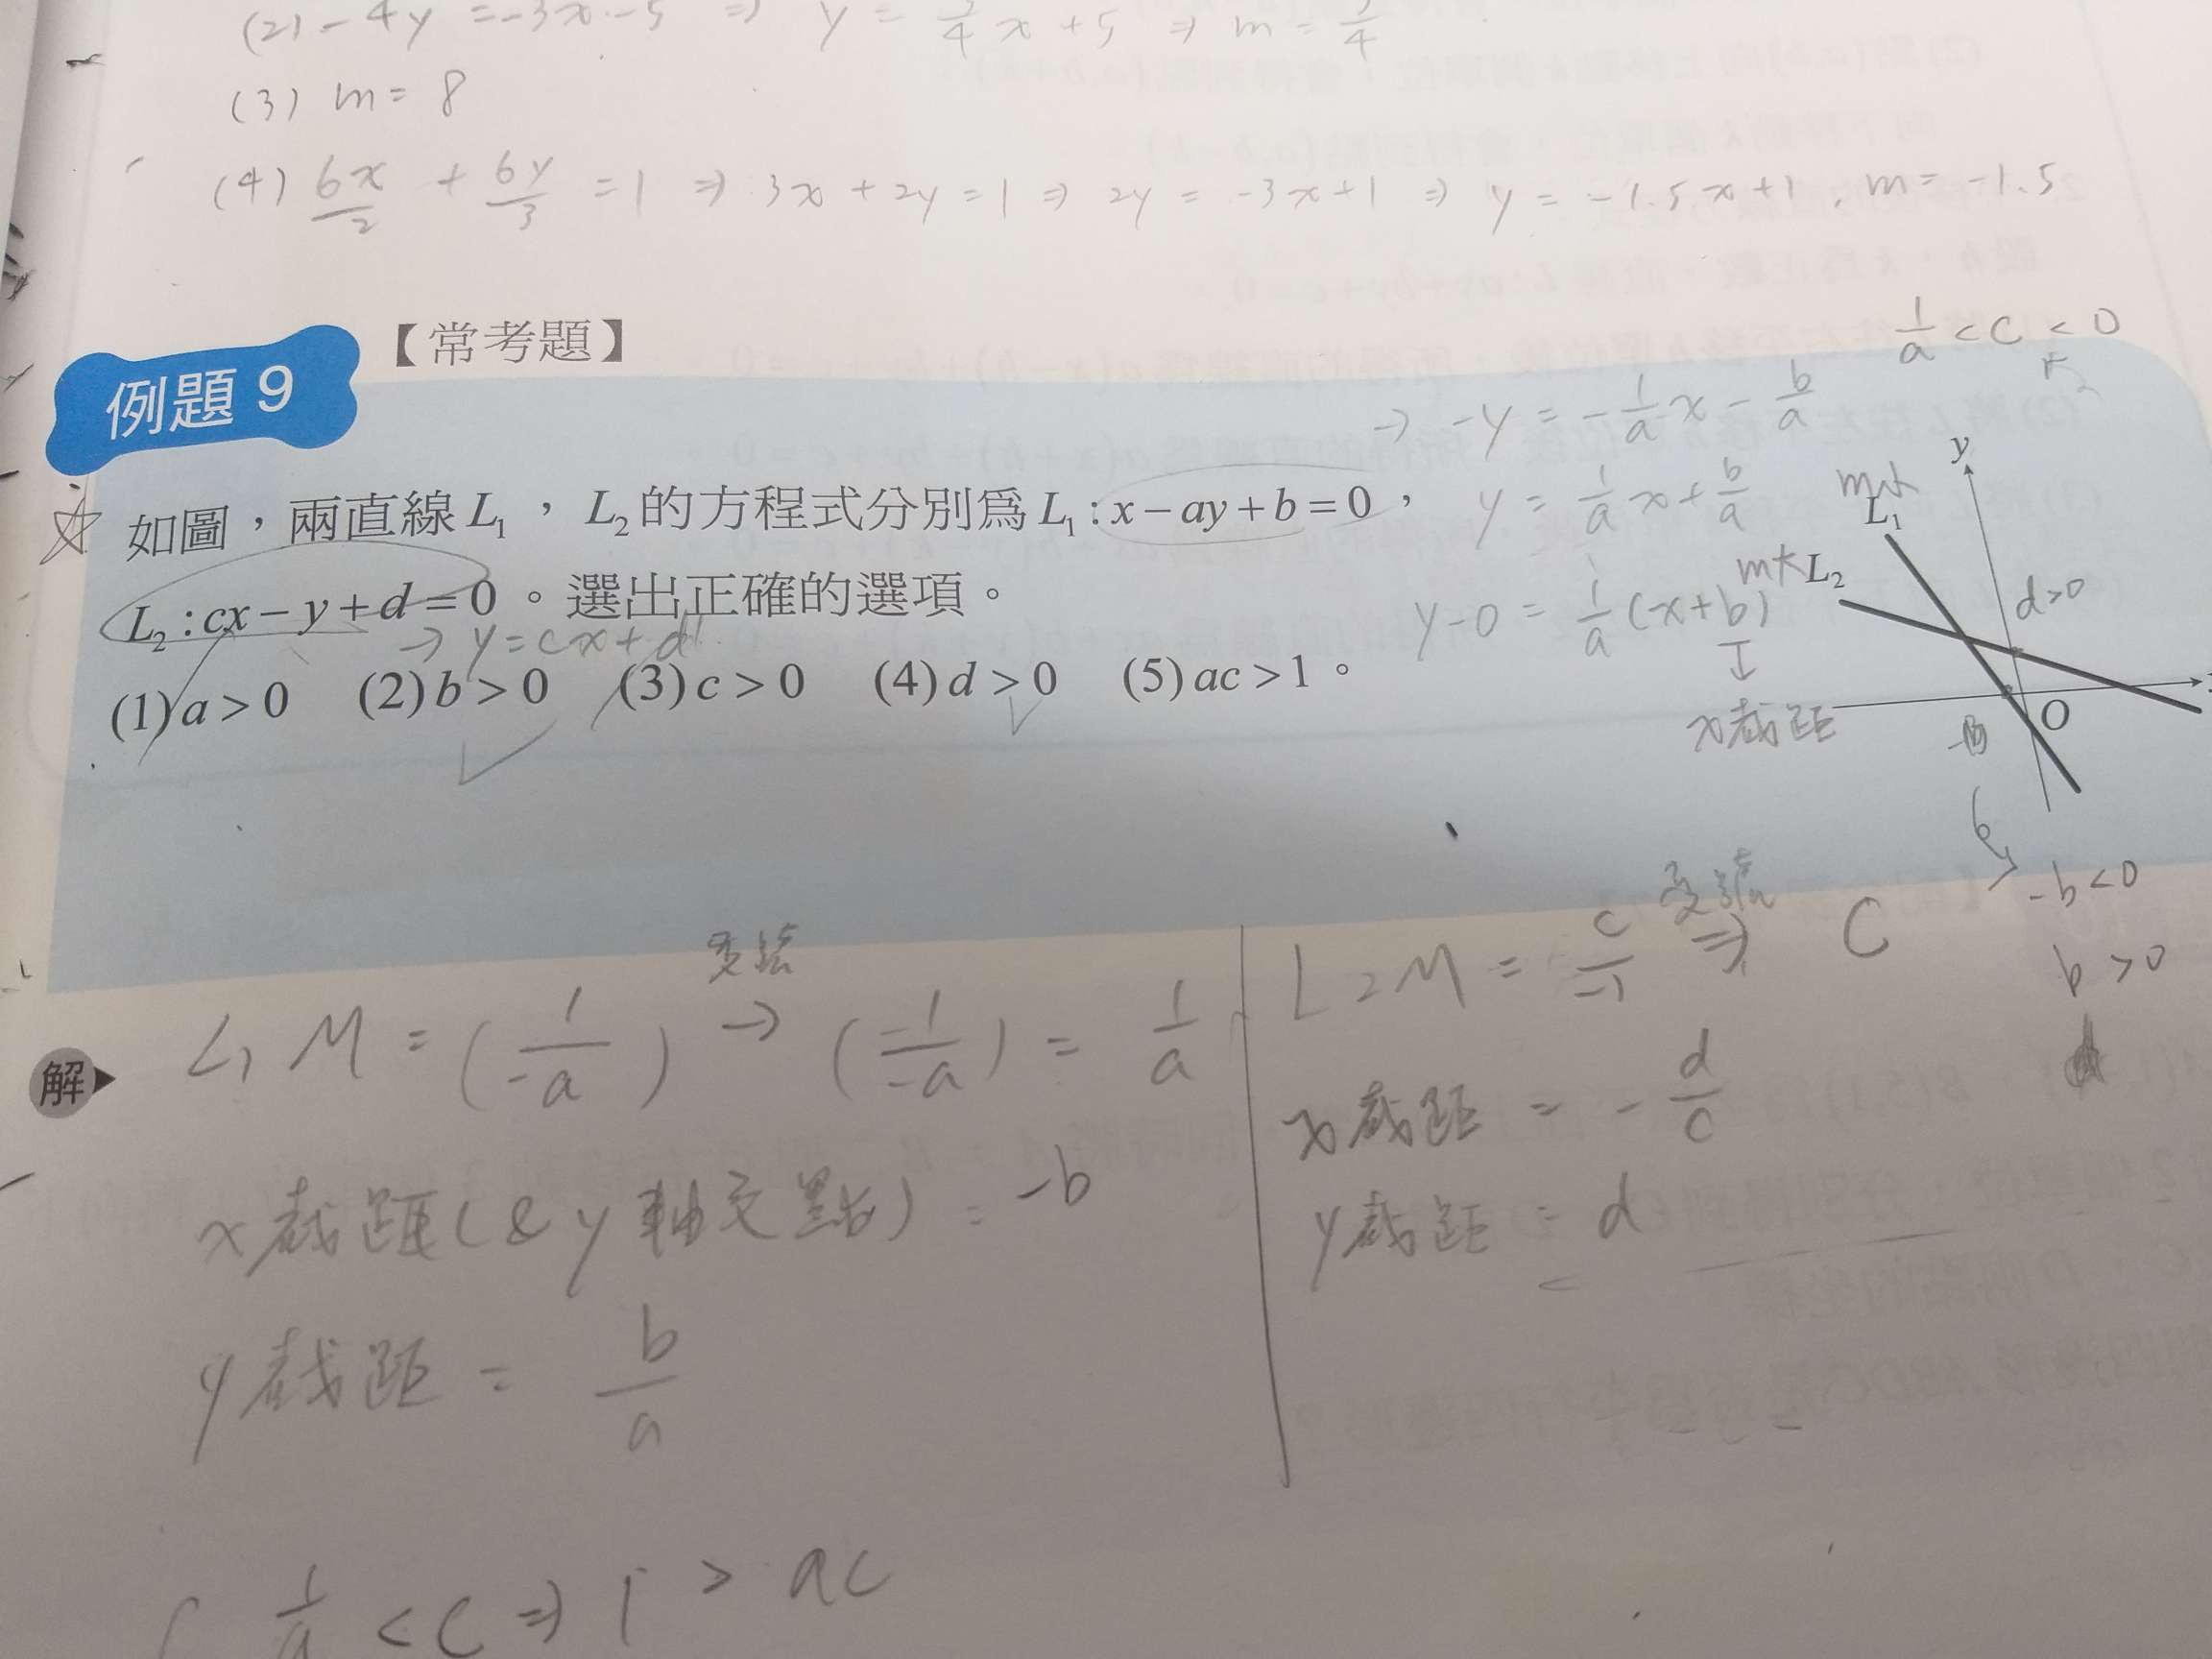 (2) -4y = -3x - 5 ⇒ y = 3/4 x + 5 ⇒ m = 3/4
(3) m = 8
(4) 6x/2 + 6y/3 = 1 ⇒ 3x + 2y = 1 ⇒ 2y = -3x + 1 ⇒ y = -1.5x + 1, m = -1.5
【常考題】
例題 9
1/a < c < 0
→ -y = -1/a x - b/a
如圖，兩直線 L₁，L₂ 的方程式分別為 L₁ : x − ay + b = 0，
y = 1/a x + b/a
L₂ : cx − y + d = 0。選出正確的選項。
→ y = cx + d
y - 0 = 1/a (x + b)
x截距
(1) a > 0 (2) b > 0 (3) c > 0 (4) d > 0 (5) ac > 1。
y
m小
L₁
m大 L₂
d>0
O
-b<0
b>0
解
L₁ M = (1/-a) → (-1/-a) = 1/a
變號
x截距(& y 軸交點) = -b
y截距 = b/a
L₂ M = c/-1 ⇒ c
變號
x截距 = - d/c
y截距 = d
1/a < c ⇒ 1 > ac